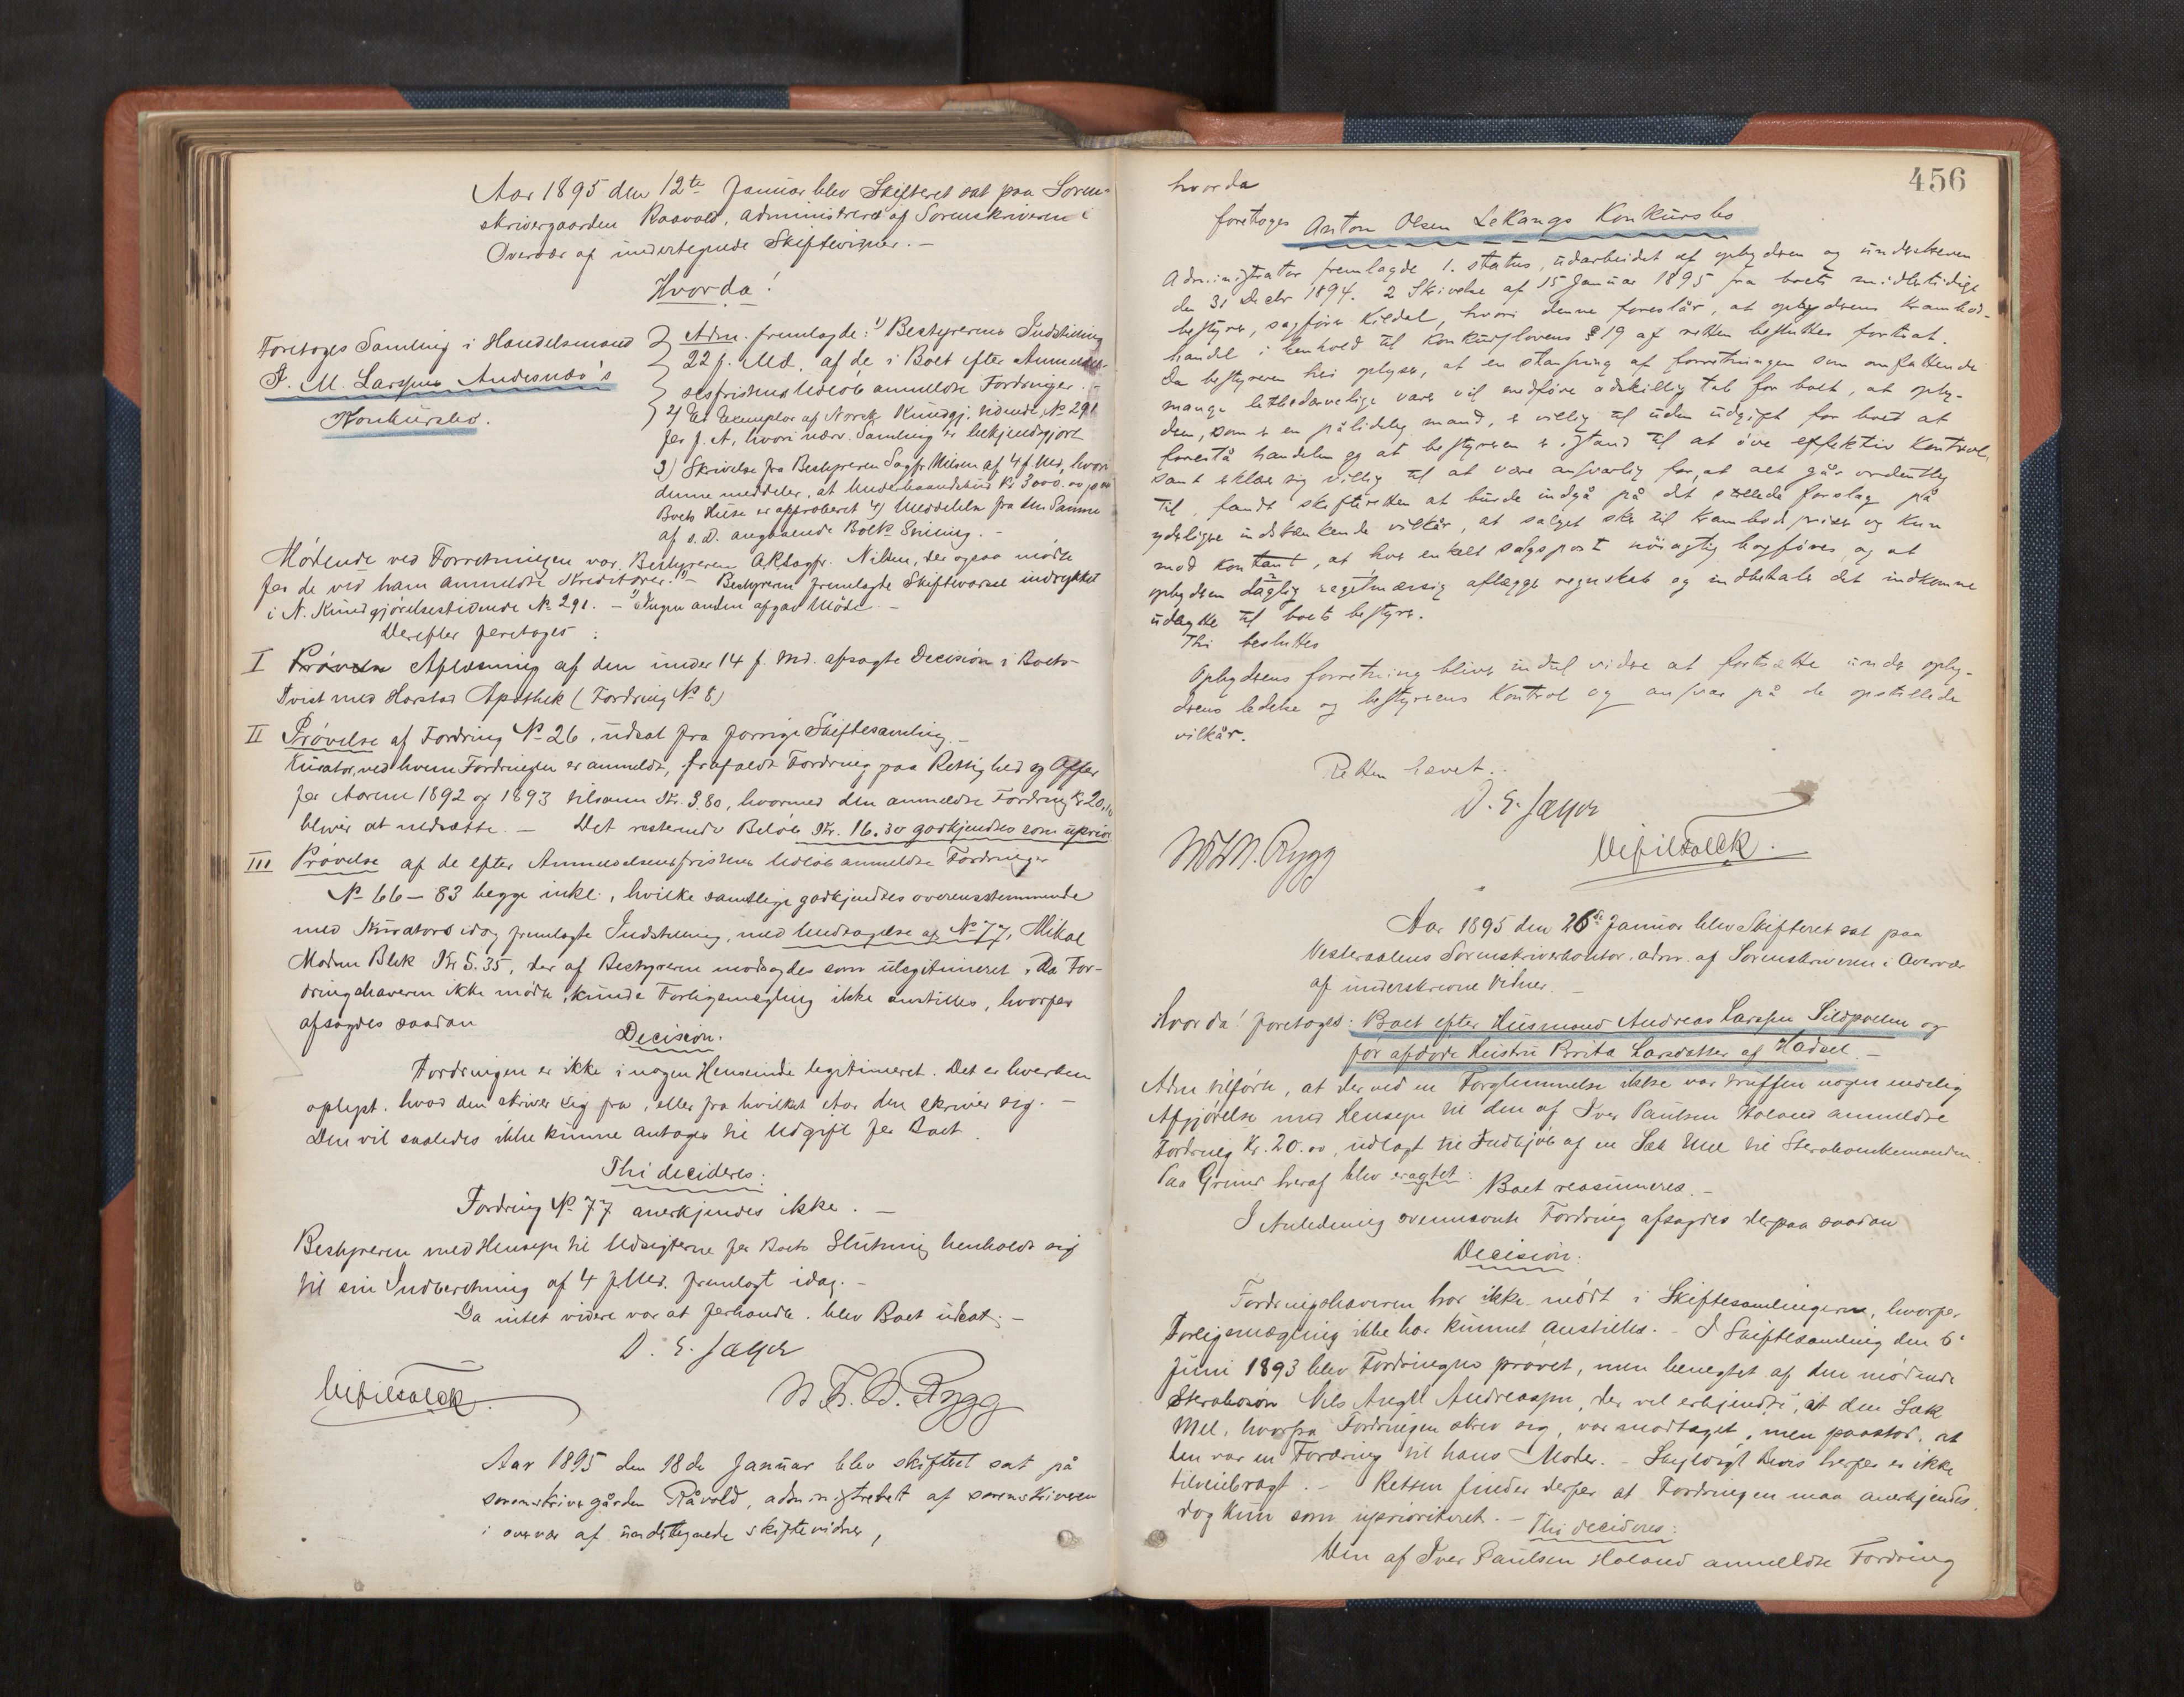 Aar 1895 den 12te Januar blev Skifteret sat paa Soren-
skrivergaarden Raavold, administreret af Sorenskriveren i
Overvær af undertegnede Skiftevidner. –
Hvorda!
Foretoges Samling i Handelsmand
J. M. Larssens Andesnæs's
Konkursbo.
Adm. fremlagde: 1) Bestyrerens Indstilling
22 f. Md. af de i Boet efter Anmeldel-
sesfristens Udløb anmeldte Fordringer. –
2) Et Exemplar af Norsk Kundgj. tidende No 291
for f. A, hvori nærv. Samling er bekjendtgjort
3) Skrivelse fra Bestyreren Sagfr Nilsen af 4 f. Md, hvori
denne meddeler, at Underhaandsbud Kr 3000.00 paa
Boets Huse er approberet 4) Meddelelse fra den Samme
af s. d. angaaende Boets Slutning. –
Mødende ved Forretningen var Bestyreren O.R.Sagfr. Nilsen, der ogsaa mødte
for de ved ham anmeldte Kreditorer. – Bestyreren fremlagte Skiftevarsel indrykket
i N. Kundgjørelsestidende No 291. – Ingen anden afgav Møde. –
Derefter foretoges:
I Prøvelse Aflæsning af den under 14 f. Md. afsagte Decision i Boets
Tvist med Harstad Apothek (Fordring No 8)
II Prøvelse af Fordring No 26, udsat fra forrige Skiftesamling. –
Kurator, ved hvem Fordringen er anmeldt, frafaldt Fordring paa Rettighed og Offer
for Aarene 1892 og 1893 tilsamm. Kr. 3.80, hvormed den anmeldte Fordring Kr 20.10
bliver at nedsætte. – Det resterende Beløb Kr. 16.30 godkjendtes som uprior
III Prøvelse af de efter Anmeldelsesfristens Udløb anmeldte Fordringer
No 66 – 83 begge inkl., hvilke samtlige godkjendtes overensstemmende
med Kurators idag fremlagte Indstilling, med Undtagelse af No 77, Mikal
Madsen Blek Kr 5.35, der af Bestyreren modsagdes som ulegitimeret. Da For-
dringshaveren ikke mødte, kunde Forligsmægling ikke anstilles, hvorfor
afsagdes saadan
Decision.
Fordringen er ikke i nogen Henseende legitimeret. Det er hverken
oplyst, hvad den skriver sig fra, eller fra hvilket Aar den skriver sig. –
Den vil saaledes ikke kunne antages til Udgift for Boet.
Thi decideres:
Fordring No 77 anerkjendes ikke. –
Bestyreren med Hensyn til Udsigterne for Boets Slutning henholdt sig
til sin Indberetning af 4 f. Md. fremlagt idag. –
Da intet videre var at forhandle, blev Boet udsat. –
D. E. Jæger
N. Fr. N. Rygg
Aar 1895 den 18de Januar blev skifteret sat på
sorenskrivergården Råvold, administreret af sorenskriveren
i overvær af undertegnede skiftevidner,
456
hvorda
foretoges Anton Olsen Lekangs Konkursbo
Administrator fremlagde 1. status, udarbeidet af opbyderen og underskreven
den 31 Decbr 1894. 2 Skrivelse af 15 Januar 1895 fra boets midlertidige
bestyrer, sagfører Kildal, hvori denne foreslår, at opbyderens krambod-
handel i henhold til Konkurslovens § 19 af retten besluttes fortsat.
Da bestyreren heri oplyser, at en standsning af forretningen som omfattende
mange letbedærvelige varer vil medføre adskillig tab for boet, at opby-
deren, som er en pålidelig mand, er villig til uden udgift for boet at
forestå handelen og at bestyreren er istand til at øve effektiv kontrol,
samt erklærer sig villig til at være ansvarlig for, at alt går ordentlig
til, fandt skifteretten at burde indgå på det stillede forslag på
yderligere indskrænkende vilkår, at salget sker til krambodpriser og kun
mod kontant, at hver enkelt salgspost nøiagtig bogføres og at
opbyderen daglig regelmæssig aflægger regnskab og indbetaler det indkomne
udbytte til boets bestyrer.
Thi besluttes
Opbyderens forretning bliver indtil videre at fortsætte under opby-
derens ledelse og bestyrerens kontrol og ansvar på de opstillede
vilkår.
Retten hævet.
D. E. Jæger
N Fr N. Rygg
Aar 1895 den 26de Januar blev Skifteret sat paa
Vesteraalens Sorenskriverkontor, adm. af Sorenskriveren i Overvær
af underskrevne Vidner. –
Hvorda! foretoges: Boet efter Husmand Andreas Larssen Sildpollen og
før afdøde Hustru Brita Larsdatter af Hadsel. –
Adm tilførte, at der ved en Forglemmelse ikke var truffen nogen endelig
Afgjørelse med Hensyn til den af Iver Paulsen Holand anmeldte
Fordring Kr. 20.00, udlagt til Indkjøb af en Sæk Mel til Sterboenkemanden.
Paa Grund heraf blev eragtet: Boet reasumeres. –
I Anledning ovennævnte Fordring afsagdes derpaa saadan
Decision:
Fordringshaveren har ikke mødt i Skiftesamlingerne, hvorfor
Forligsmægling ikke har kunnet anstilles. – I Skiftesamling den 6'
Juni 1893 blev Fordringen prøvet, men benegtet af den mødende
Sterbosøn Nils Angel Andreassen, der vel erkjendte, at den Sæk
Mel, hvorfra Fordringen skrev sig, var modtaget, men paastod, at
den var en Foræring til hans Moder. – Skyldigt Bevis herfor er ikke
tilveiebragt. – Retten finder derfor at Fordringen maa anerkjendes,
dog kun som uprioriteret. – Thi decideres:
Den af Iver Paulsen Holand anmeldte Fordring